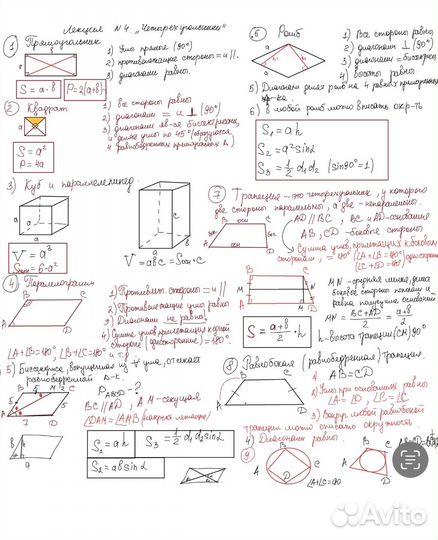 Лекция №4 „Четырехугольники"
① Прямоугольник
1) Углы прямые (90°)
2) противоположные стороны = и ||.
3) диагонали равны.
S = a·b
P=2(a+b)
② Квадрат
1) Все стороны равны
2) диагонали = и ⊥ (90°)
3) диагонали яв-ся биссектрисами
и делят углы по 45° (образуются
4 равнобедренных прямоугольных Δ)
S=a²
P=4a
3) Куб и параллелепипед
V = a³
Sпов=6·a²
V = abc = Sосн·c
④ Параллелограмм
1) Противопол. стороны = и ||
2) Противолежащие углы равны
3) Диагонали не равны!
4) Сумма углов прилежащих к одной
стороне (односторонние) = 180°.
∠A+∠B=180° ∠B+∠C=180°
и т.д.
5) Биссектриса, выпущенная из ∀ угла, отсекает
равнобедренный Δ-к.
P ABCD - ?
BC || AD, AM - секущая
S₁ = ah
S₃ = ½ d₁d₂ sin2
S₂ = ab sin2
5 Ромб
1) Все стороны равны
2) диагонали ⊥ (90°)
3) диагонали = биссектрисы
4) высоты равны
5) Диагонали делят ромб на 4 равных прямоугольных
Δ-ка.
6) В любой ромб можно вписать окр-ть
S₁ = ah
S₂ = a² sin2
S₃ = ½ d₁d₂ (sin90°=1)
⑦ Трапеция - это четырехугольник, у которого
две стороны параллельны, а две - непараллельны.
AD || BC, BC и AD - основания
AB, CD - боковые стороны
Сумма углов, прилежащих к боковым
сторонам, = 180° (∠A+∠B=180°) односторон
(∠C+∠D=180°)
MN - средняя линия, делит
боковые стороны пополам и
равна полусумме оснований
MN = BC+AD / 2 = a+b / 2
S = a+b / 2 · h
h - высота трапеции (CH) 90°
⑧ Равнобокая (равнобедренная) трапеция.
1. AB=CD
2) Углы при основаниях равны
∠A = ∠D, ∠B = ∠C
3) Вокруг любой равнобокой
трапеции можно описать окружность
4) Диагонали равны.
⑨
∠A+∠C=180
Avito